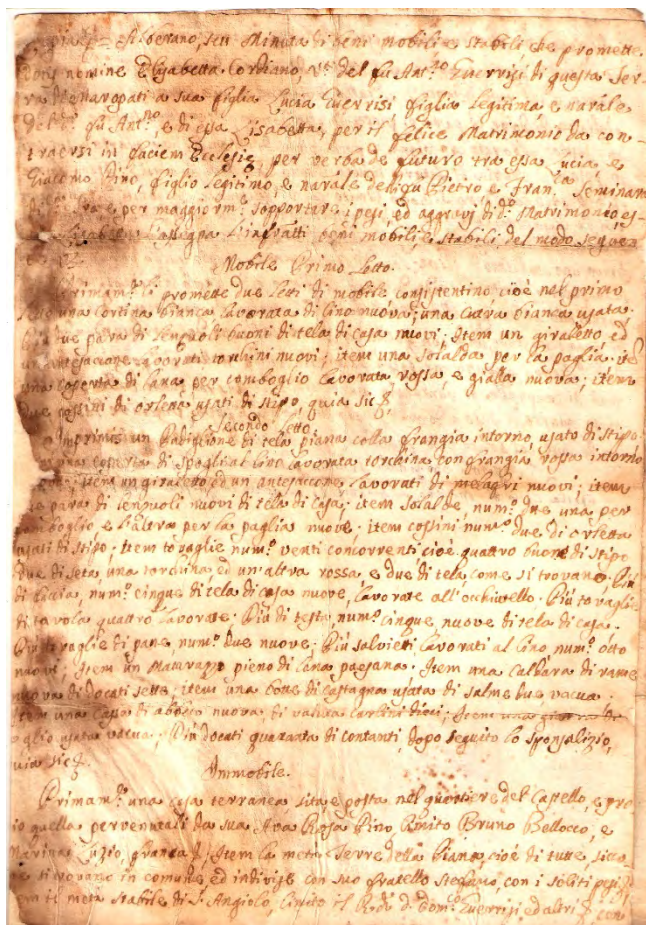 Alberano, seu Minuta di beni mobili e stabili che promette
nomine Elisabetta Cordiano, v.ª del fu Ant.no Guerrisi di questa Ter-
ra di Anaropati a sua figlia Lucia Guerrisi, figlia legitima, e nat.ale
del d.º fu Ant.no, e di essa Lisabetta, per il felice Matrimonio da con-
traersi in faciem Ecclesię, per verba de futuro tra essa Lucia, e
Giacomo Pino, figlio legitimo, e nat.ale delli qu. Pietro e Fran.ca Seminara
e per maggiorm.te sopportare i pesi, ed aggravj di d.º Matrimonio, es-
assegna l'infratti beni mobili e stabili, del modo seguen
Mobile Primo Letto.
Primam.te li promette due letti di mobile consistentino cioè nel primo
una cortina bianca lavorata di lino nuova; una cutra bianca usata.
due para di lenzuoli buoni di tela di casa nuovi; Item un giraletto, ed
un antesaccone lavorati torchini nuovi; item una sotalda per la paglia. ite
una coperta di lana per comboglio lavorata, rossa, e gialla nuova; item
due cossini di orletta usati di stipo, quia sic &
Secondo Letto.
Imprimis un Padiglione di tela piana colla frangia intorno, usato di stipo.
una coperta di spoglia al lino lavorata torchina con frangia rossa intorno
item un giraletto, ed un antesaccone lavorati di nuovi; item
para di lenzuoli nuovi di tela di casa; item sotalde, num.º due una per
comboglio e l'altra per la paglia nuove; item cossini num.º due di orletta
usati di stipo; Item tovaglie num.º venti concorrenti, cioè quattro buone di stipo
due di seta, una torchina, ed un'altra rossa, e due di tela, come si trovano. Più
di faccia, num.º cinque di tela di casa nuove, lavorate all'occhiuzello. Più tovaglie
di tavola quattro lavorate. Più di testa, num.º cinque, nuove di tela di casa.
Più tovaglie di pane, num.º due nuove; Più salvietti lavorati al lino, num.º otto
nuovi; Item un Matarazzo pieno di lana paesana. Item una caldara di rame
nuova di docati sette; item una botte di castagna usata di salme due, vacua.
Item una cassa di abbito nuova, di valuta carlini dieci; Item
oglio usata vacua; Più docati quaranta di contanti, dopo seguito lo sponsalizio,
quia sic &
Immobile.
Primam.te una casa terranea sita e posta nel quartiere del Castello, e pro
io quella pervenutali da sua Ava Rosa Pino, limito Bruno Bellocco, e
Marina Luzio, franca &; Item la metà Terre della Piano, cioè di tutte
si trovano in comune ed indivise con suo fratello Stefano, con i soliti pesi &
em il metà stabile di S. Angiolo, limito il R.do d. Dom.co Guerrisi ed altri & con